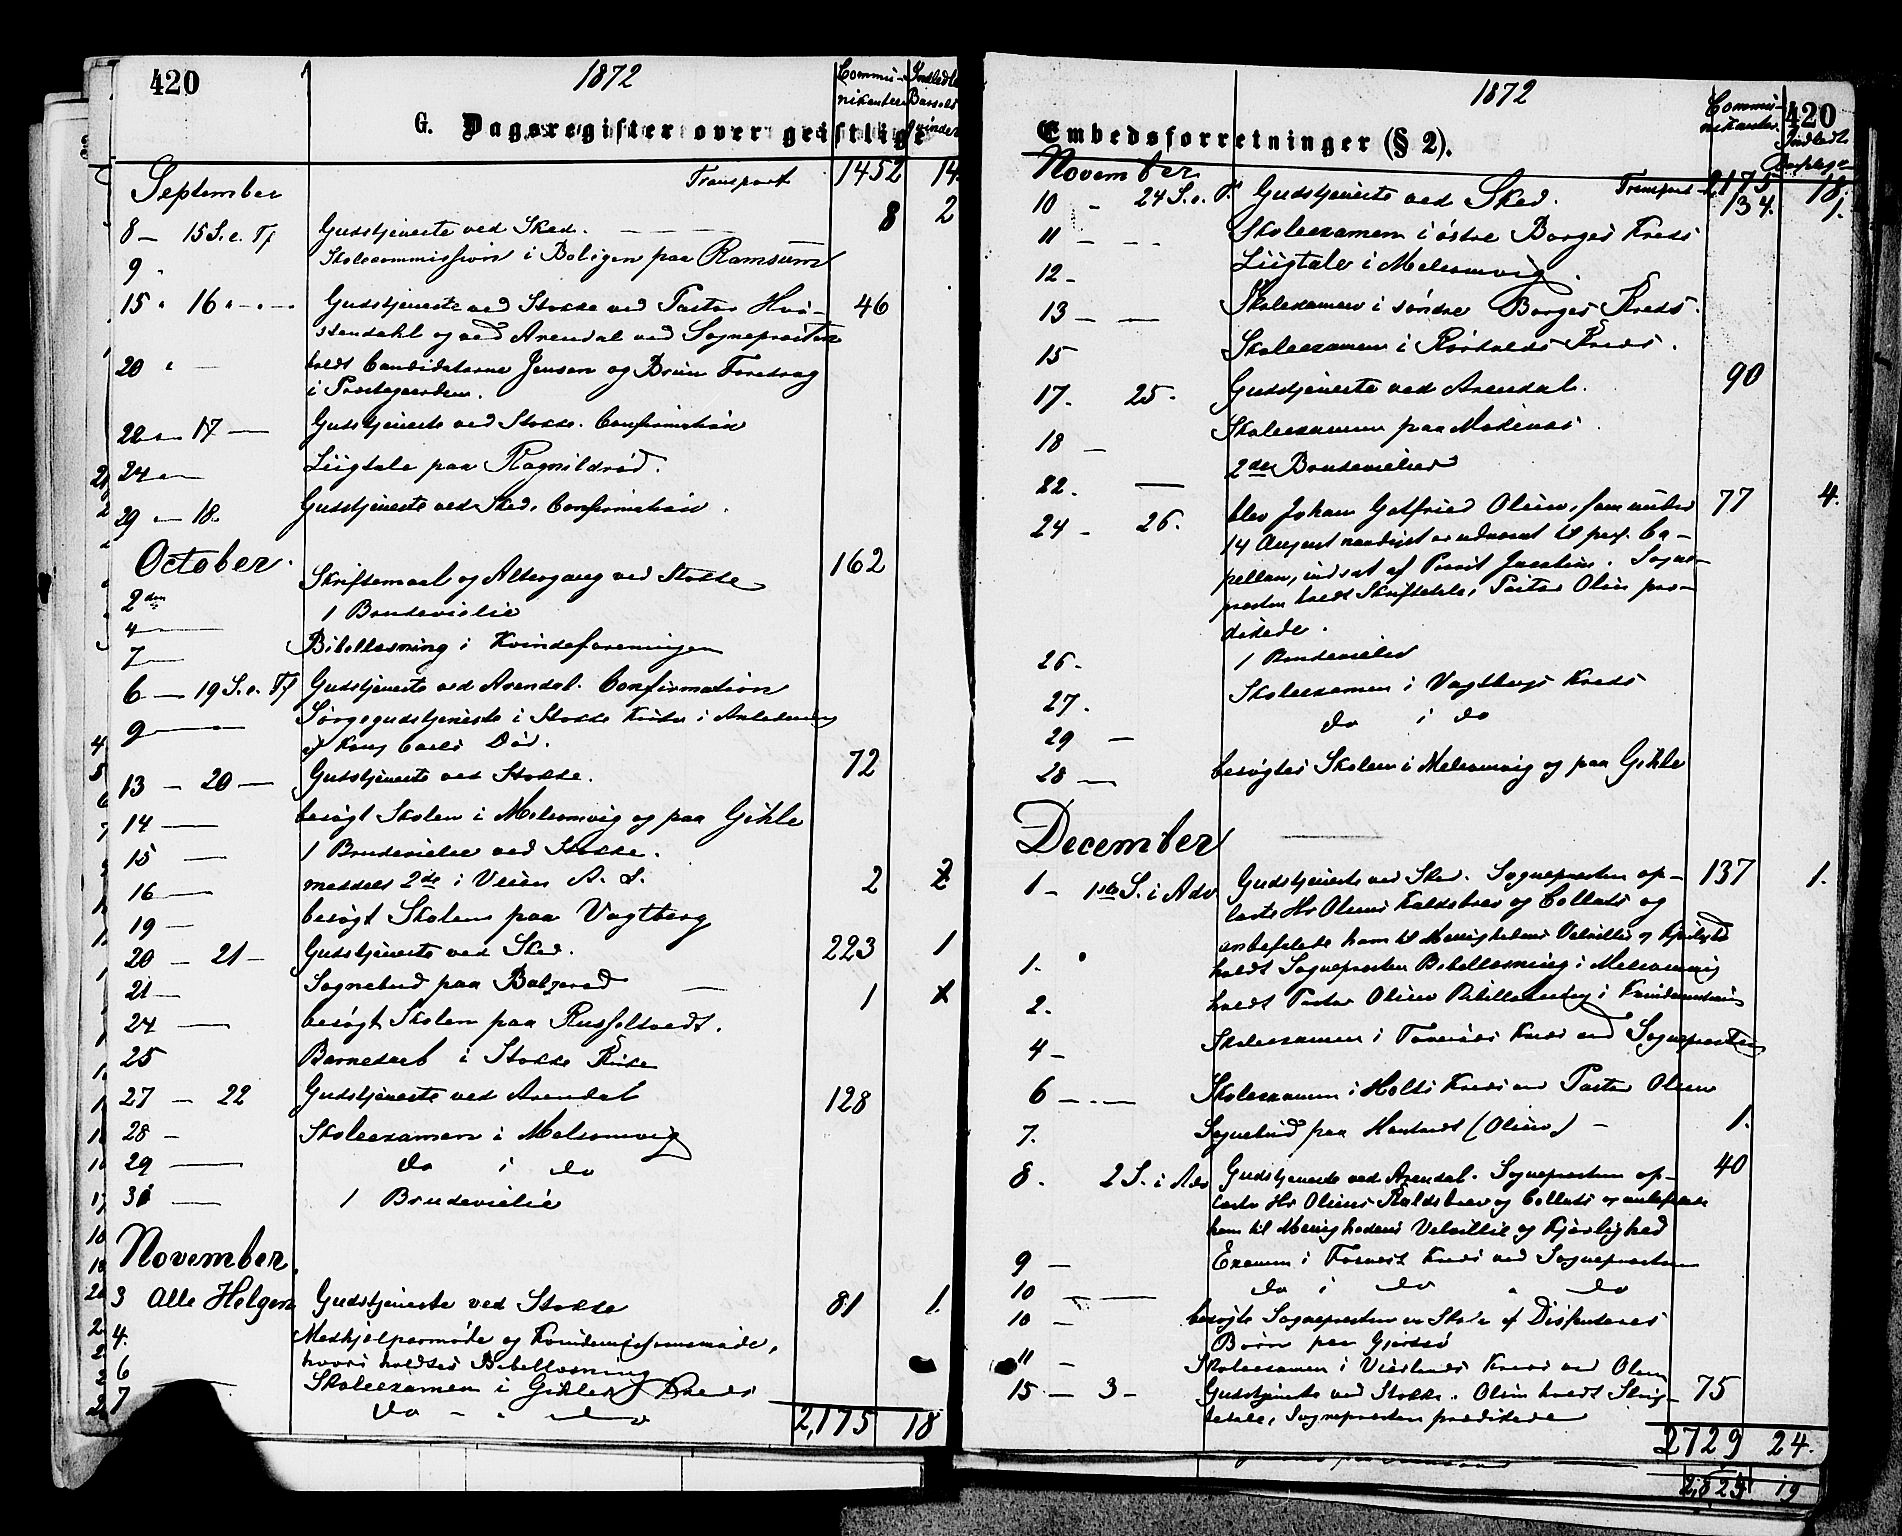 420
1872
Commu-
nikanter
G. Dagsregister over geistlige
September
Transport 1452 14
8 — 15 S. e. Tf Gudstjeneste ved Sked. 8 2
9 Skolecommission i Boligen paa Ramsum
15 " 16 " — Gudstjeneste ved Stokke ved Pastor Hvi-
stendahl og ved Arendal ved Sognepresten 46
20 " — holdt Candidaterne Jensen og Bruun Foredrag
i Prestegaarden.
22 — 17 — Gudstjeneste ved Stokke. Confirmation
24 — Liigtale paa Ragnildrød.
29 — 18. Gudstjeneste ved Sked. Confirmation.
October.
2den Skriftemaal og Altergang ved Stokke 162
4 — 1 Brudevielse
7 — Bibellæsning i Kvindeforeningen
6 — 19 S. e. Tf Gudstjeneste ved Arendal. Confirmation
9 — Sørgegudstjeneste i Stokke Kirke i Anledning
af Kong Carls Død.
13 — 20 — Gudstjeneste ved Stokke. 72
14 — besøgt Skolen i Melsomvig og paa Gjekle
15 — 1 Brudevielse ved Stokke.
16 — 2
19 — besøgt Skolen paa Vagtberg
20 — 21 — Gudstjeneste ved Sked. 223 1
21 — Sognebud paa 1
24 — besøgt Skolen paa
25 Barnedaab i Stokke Kirke
27 — 22 Gudstjeneste ved Arendal 128
28 — Skoleexamen i Melsomvig
29 — do i do
31 — 1 Brudevielse
November.
3 Alle Helgen Gudstjeneste ved Stokke 81 1.
4.
hvori holdtes Bibellæsning
6 Skoleexamen i Kreds
7 do — " do
2,175 18
1872
Commu-
nikanter.
420
Indledte
Embedsforretninger (§ 2).
November
Transport 2175 18.
10 — 24 S. e. T. Gudstjeneste ved Sked. 134. 1.
11 — — Skoleexamen i østre Borges Kreds
12 — Liigtale i Melsomvig.
13 — — Skoleexamen i søndre Borges Kreds.
15 Skoleexamen i Kreds.
17. 25. Gudstjeneste ved Arendal. 90
18 — Skoleexamen paa
22. — 2de Brudevielser
24 — 26. blev Johan Gotfried Olsen, som under 77 4.
14 August naadigst er udnævnt til pers. Ca-
pellan, indsat af Provst Sogne-
presten holdt Skriftetale, Pastor Olsen præ-
dikede.
26. 1 Brudevielse
27. Skoleexamen i Vagtbergs Kreds
29 — do i do
28 — besøgtes Skolen i Melsomvig og paa Gjekle
December
1 — 1ste S. i Adv Gudstjeneste ved Sked. Sognepresten op- 137 1.
læste Hr Olsens Kaldsbrev og Collats og
anbefalede ham til Menighedens Velvillie og Kjerlighed
1. holdt Sognepresten Bibellæsning i Melsomvig
2. holdt Pastor Olsen Bibellæsning i
4 — Skoleexamen i Kreds ved Sognepresten
6 — . — Skoleexamen i Holts Kreds ved Pastor Olsen
7. Sognebud paa (Olsen) — 1.
8. 2 S. i Adv Gudstjeneste ved Arendal. Sognepresten op- 40
læste Hr Olsens Kaldsbrev og Collats og anbefalede
ham til Menighedens Velvillie og Kjerlighed
9 — Examen i Kreds ved Sognepresten
10 — — do i do " do
10 — besøgte Sognepresten en Skole af Dissenteres
Børn paa
11 — Skoleexamen i Kreds ved Olsen
15 — 3 — Gudstjeneste ved Stokke. Olsen holdt Skrif- 75
tetale, Sognepresten prædikede
2729 24.
2,825 19